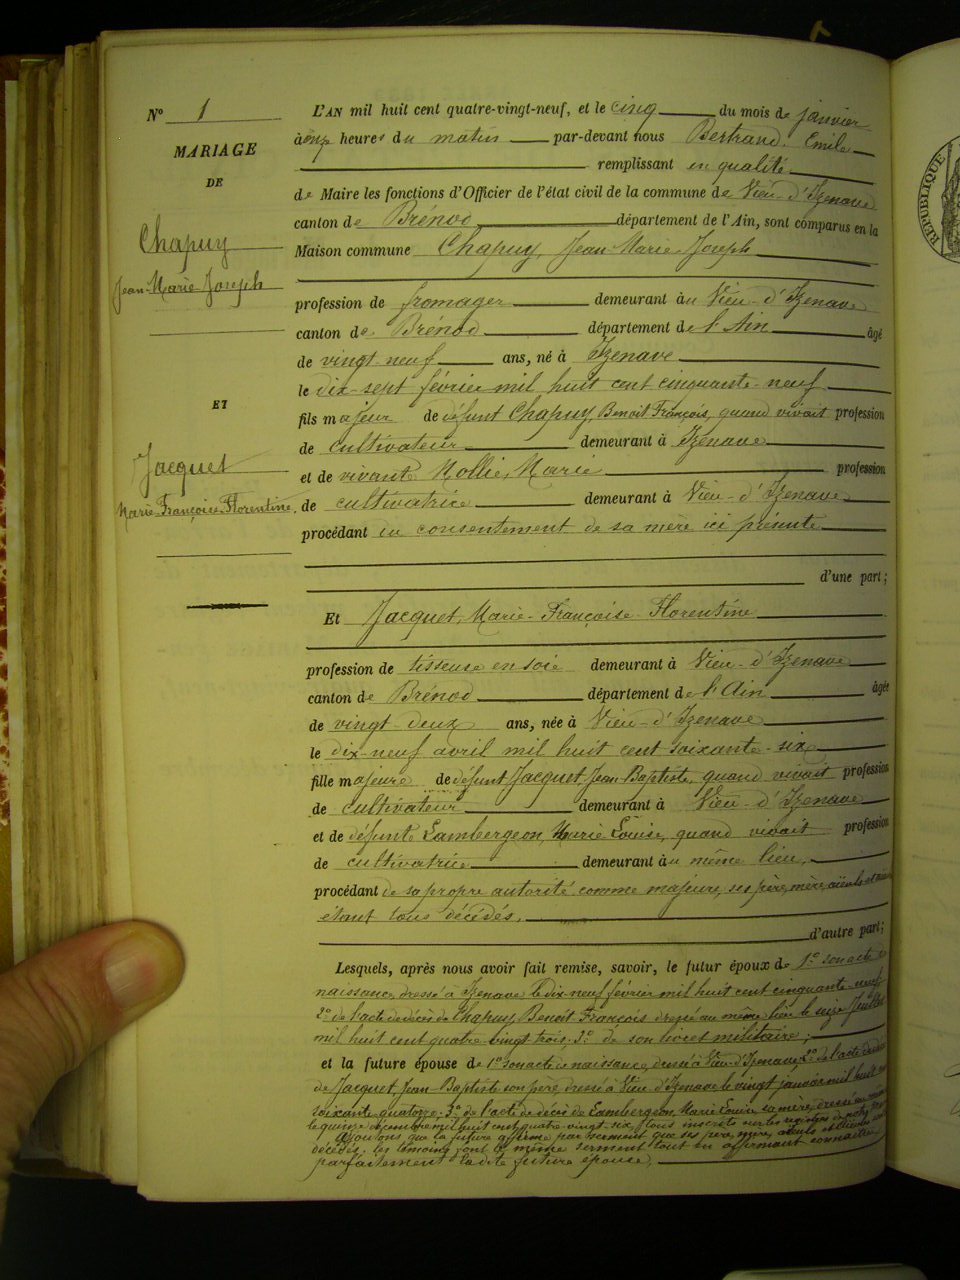 N° 1
MARIAGE
DE
Chapuy
Jean-Marie Joseph
ET
Jacquet
Marie-Françoise-Florentine.
L'AN mil huit cent quatre-vingt-neuf, et le cinq du mois de janvier
à onze heures du matin par-devant nous Bertrand, Emile
remplissant en qualité
de Maire les fonctions d'Officier de l'état civil de la commune de Vieu-d'Izenave
canton de Brénod département de l'Ain, sont comparus en la
Maison commune Chapuy, Jean-Marie-Joseph
profession de fromager demeurant à Vieu-d'Izenave
canton de Brénod département de l'Ain âgé
de vingt neuf ans, né à Izenave
le dix-sept février mil huit cent cinquante-neuf
fils majeur de défunt Chapuy, Benoit François, quand vivait profession
de cultivateur demeurant à Izenave
et de vivante Mollie, Marie profession
de cultivatrice demeurant à Vieu-d'Izenave
procédant du consentement de sa mère ici présente
d'une part;
Et Jacquet, Marie-Françoise-Florentine
profession de tisseuse en soie demeurant à Vieu-d'Izenave
canton de Brénod département de l'Ain âgée
de vingt-deux ans, née à Vieu-d'Izenave
le dix-neuf avril mil huit cent soixante-six
fille majeure de défunt Jacquet, Jean-Baptiste, quand vivait profession
de cultivateur demeurant à Vieu-d'Izenave
et de défunte Lambergeon, Marie Louise, quand vivait profession
de cultivatrice demeurant au même lieu,
procédant de sa propre autorité comme majeure, ses père, mère, aïeuls et
étant tous décédés.
d'autre part;
Lesquels, après nous avoir fait remise, savoir, le futur époux de 1° son acte de
naissance, dressé à Izenave le dix-neuf février mil huit cent cinquante-neuf
2° de l'acte de décès de Chapuy Benoit François dressé au même lieu le seize juillet
mil huit cent quatre-vingt trois. 3° de son livret militaire;
et la future épouse de 1° son acte de naissance, dressé à Vieu-d'Izenave; 2° de l'acte de décès
de Jacquet, Jean-Baptiste son père, dressé à Vieu d'Izenave le vingt janvier mil huit cent
soixante quatorze. 3° de l'acte de décès de Lambergeon, Marie Louise sa mère, dressé au même
le quinze décembre mil huit cent quatre-vingt-six, tous inscrits sur les registres de
Ajoutons que la future affirme par serment que ses père, mère, aïeuls et
décédés. les témoins font le même serment tout en affirmant connaître
parfaitement ladite future épouse,
RÉPUBLIQUE